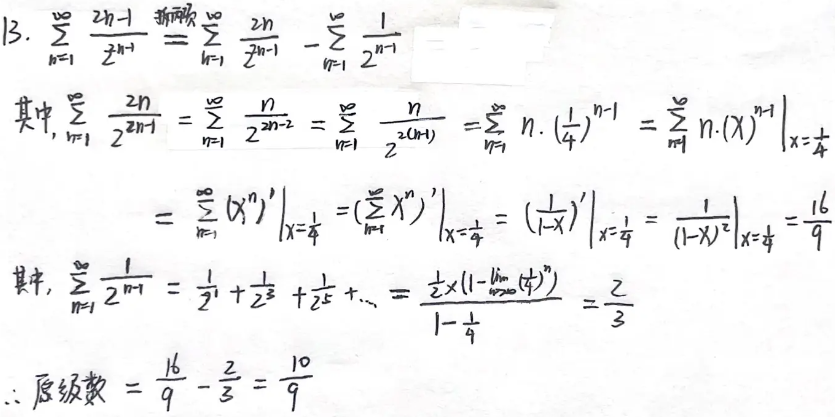 13. $\sum_{n=1}^{\infty} \frac{2n-1}{2^{n-1}} \overset{拆两项}{=} \sum_{n=1}^{\infty} \frac{2n}{2^{n-1}} - \sum_{n=1}^{\infty} \frac{1}{2^{n-1}}$
其中, $\sum_{n=1}^{\infty} \frac{2n}{2^{2n-1}} = \sum_{n=1}^{\infty} \frac{n}{2^{2n-2}} = \sum_{n=1}^{\infty} \frac{n}{2^{2(n-1)}} = \sum_{n=1}^{\infty} n \cdot (\frac{1}{4})^{n-1} = \sum_{n=1}^{\infty} n \cdot (x)^{n-1} |_{x=\frac{1}{4}}$
$= \sum_{n=1}^{\infty} (x^n)' |_{x=\frac{1}{4}} = (\sum_{n=1}^{\infty} x^n)' |_{x=\frac{1}{4}} = (\frac{1}{1-x})' |_{x=\frac{1}{4}} = \frac{1}{(1-x)^2} |_{x=\frac{1}{4}} = \frac{16}{9}$
其中, $\sum_{n=1}^{\infty} \frac{1}{2^{n-1}} = \frac{1}{2^1} + \frac{1}{2^3} + \frac{1}{2^5} + \dots = \frac{\frac{1}{2} \times (1 - \lim_{n \to \infty} (\frac{1}{4})^n)}{1 - \frac{1}{4}} = \frac{2}{3}$
∴ 原级数 $= \frac{16}{9} - \frac{2}{3} = \frac{10}{9}$